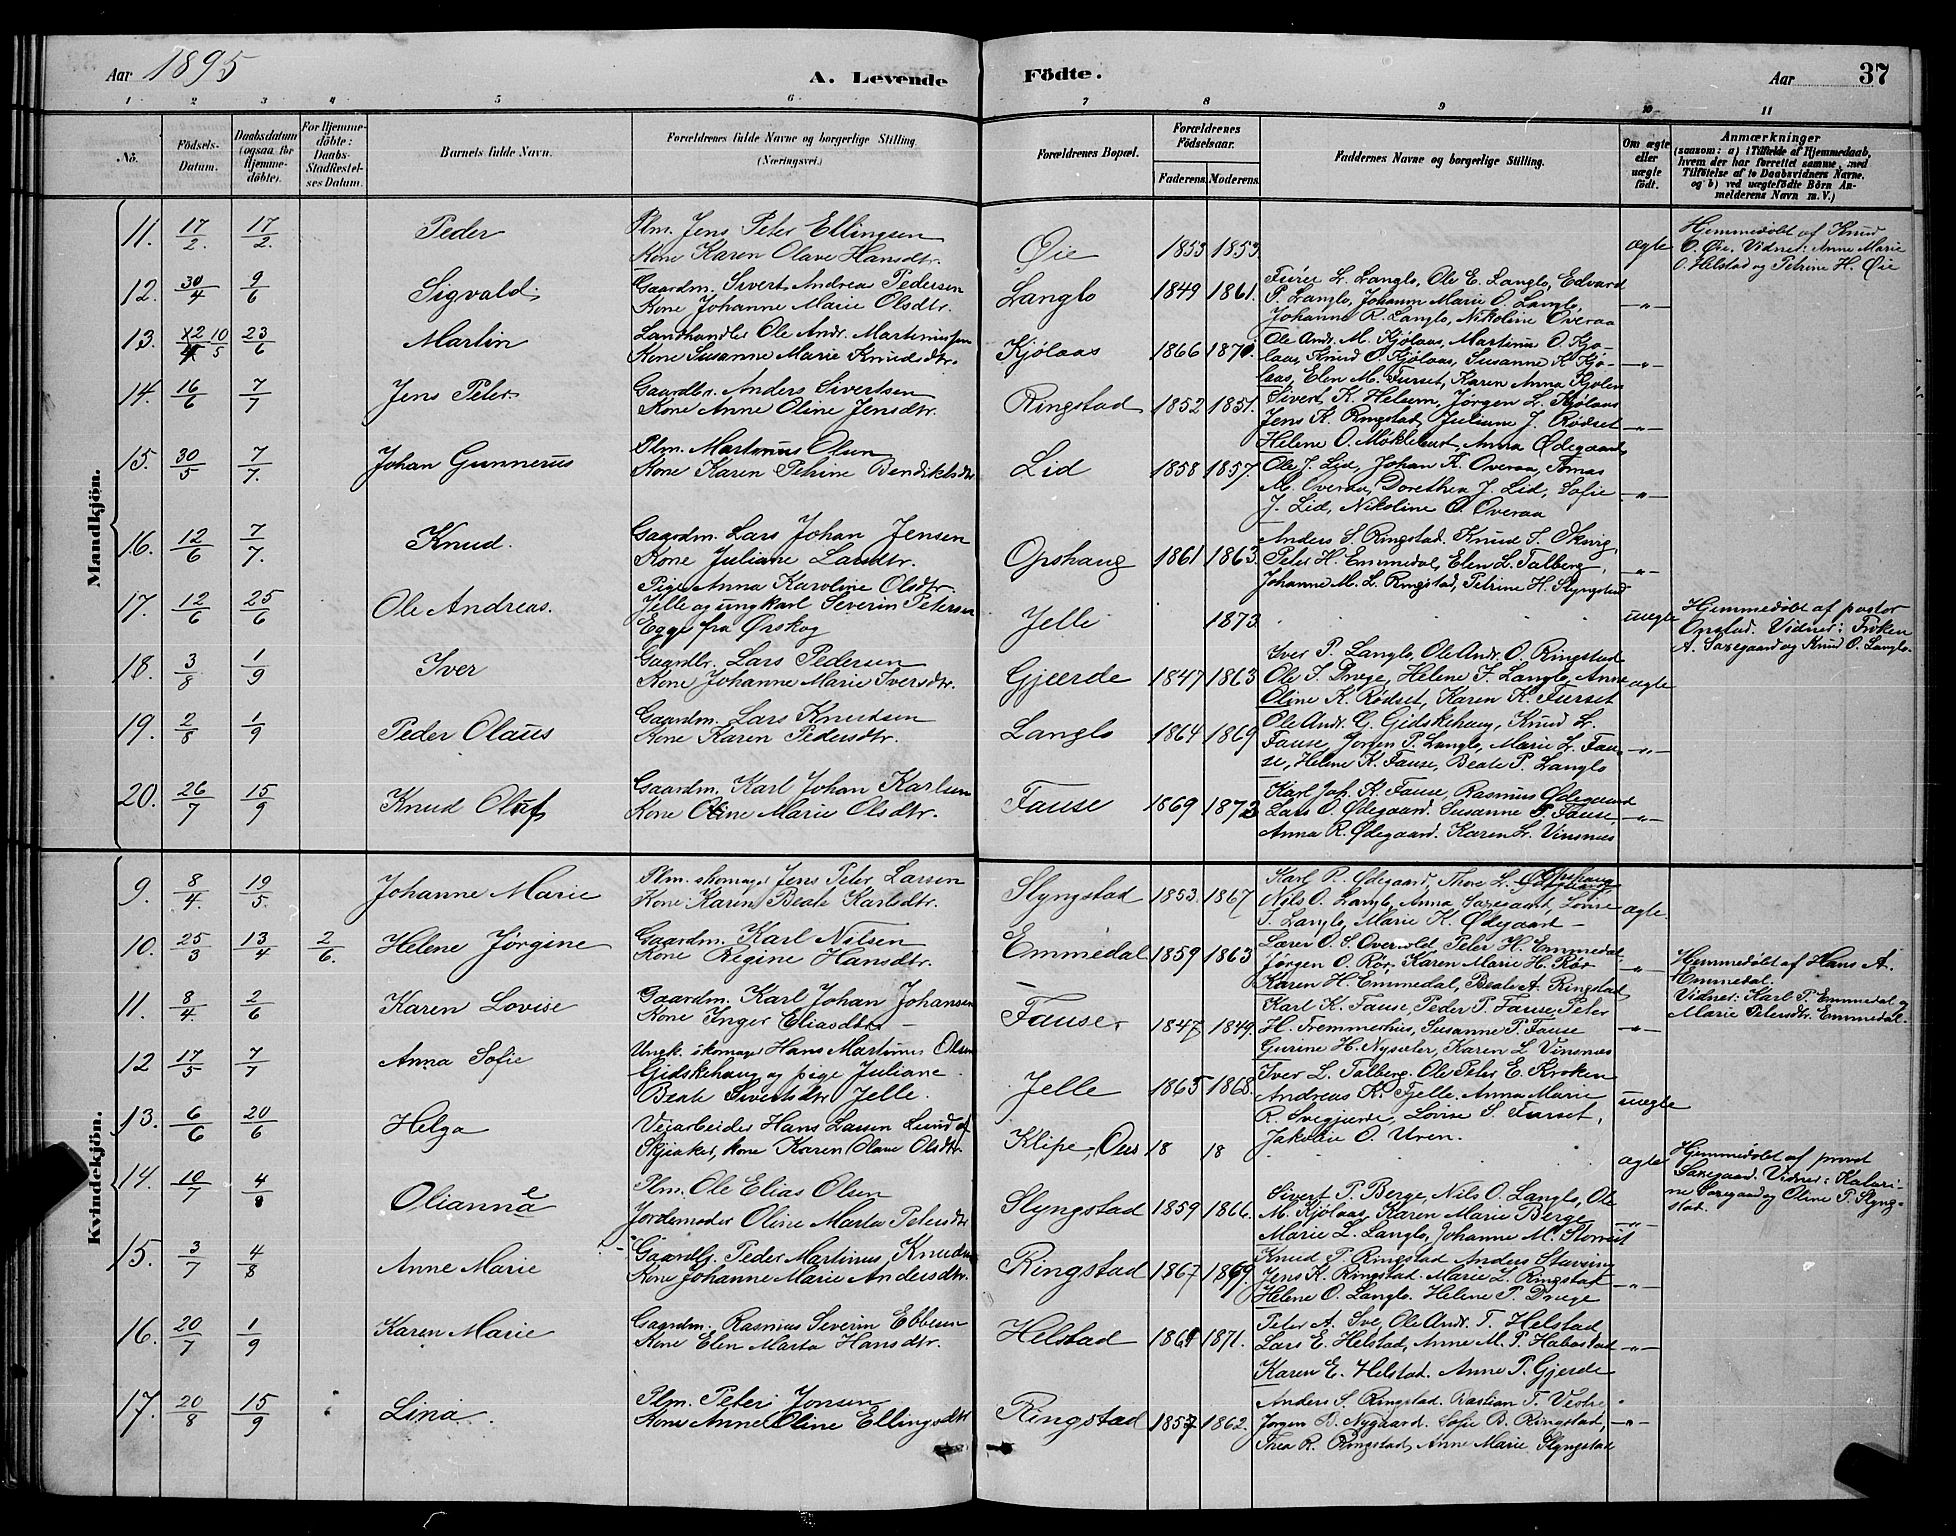 Aar 1895 A. Levende Födte. Aar 37
1 2 3 4 5 6 7 8 9 10 11
No. Födsels-Datum. Daabsdatum (ogsaa for Hjemme-döbte). For Hjemme-döbte: Daabs-Stadfæstelses Datum. Barnets fulde Navn. Forældrenes fulde Navne og borgerlige Stilling. (Næringsvei.) Forældrenes Bopæl. Forældrenes Födselsaar. Faderens. Moderens. Faddernes Navne og borgerlige Stilling. Om ægte eller uægte födt. Anmærkninger (saasom: a) i Tilfælde af Hjemmedaab, hvem der har forrettet samme, med Tilföielse af to Daabsvidners Navne, og b) ved uægtefödte Börn Anmelderens Navn m. V.)
Mandkjön.
11. 17/2 17/2. Peder Plm. Jens Peter Ellingsen
Kone Karen Olave Hansdtr. Øie 1853 1853 ægte Hjemmedøbt af Knud
O. Øie. Vidner: Anne Marie
O. Helstad og Petrine H. Øie
12. 30/4 9/6 Sigvald Gaardm. Sivert Andrea Pedersen
Kone Johanne Marie Olsdtr. Langlo 1849 1861. L. Langlo, Ole E. Langlo, Edvard
P. Langlo, Johann Marie O. Langlo,
Johanne R. Langlo, Nikoline Overaa -"-
13. 10/5 23/6 Martin Landhandler Ole Andr. Martinussen
Kone Susanne Marie Knudsdtr. Kjølaas 1866 1870. Ole Andr. M. Kjølaas, Martina O. Kjø-
laas, Knud O. Kjølaas, Susanne K. Kjø-
laas, Elen M. Furset, Karen Anna Kjølen -"-
14. 16/6 7/7 Jens Peter Gaardbr. Anders Sivertsen
Kone Anne Oline Jensdtr. Ringstad 1852 1851. Sivert K. Helsem, Jørgen L. Kjølaas
Jens K. Ringstad, Juliane J. Rødset
Helene O. Møklebust, Anna Ødegaard -"-
15. 30/5 7/7. Johan Gunnerus Plm. Martinus Olsen
Kone Karen Petrine Bendiktsdtr. Lid 1858 1857. Ole J. Lid, Johan K. Overaa, Tomas
M. Overaa, Dorethea J. Lid, Sofie
J. Lid, Nikoline O. Overaa -"-
16. 12/6 7/7. Knud. Gaardm. Lars Johan Jensen
Kone Juliane Larsdtr. Opshaug 1861 1863. Anders S. Ringstad. Knud S. Økvig,
Peter H. Emmedal, Elen L. Talberg,
Johanne M. L. Ringstad, Petrine H. Slyngstad -"-
17. 12/6 25/6 Ole Andreas. Pige Anna Karoline Olsdtr
Jelle og ungkarl Severin Petersen
Egge fra Ørskog Jelle 1873 uægte Hjemmedøbt af pastor
Vidner: Frøken
A. Saxegaard og Knud O. Langlo.
18. 3/8 1/9 Iver Gaardbr. Lars Pedersen
Kone Johanne Marie Iversdtr. Gjerde 1847 1863 Iver P. Langlo, Ole Andr. O. Ringstad
Ole I. Druge, Helene F. Langlo, Anne
Oline K. Rødset, Karen K. Furset ægte
19. 2/8 1/9 Peder Olaus Gaardm. Lars Knudsen
Kone Karen Pedersdtr. Langlo 1864 1869 Ole Andr. C. Gidskehaug, Knud L.
Fause, Jørgen P. Langlo, Marie L. Fau-
se, Helene K. Fause, Beate P. Langlo -"-
20. 26/7 15/9 Knud Oluf Gaardm. Karl Johan Karlsen
Kone Oline Marie Olsdtr. Fause 1869 1873 Karl Joh. K. Fause, Rasmus Ødegaard
Lars O. Ødegaard. Susanne P. Fause
Anna R. Ødegaard. Karen L. Vinsnes -"-
Kvindekjön.
9. 8/4. 19/5. Johanne Marie Plm. skomager Jens Peter Larsen
Kone Karen Beate Karlsdtr. Slyngstad 1853 1867 Karl P. Ødegaard, Thore L. Opshaug
Nils O. Langlo, Anna Saxegaard, Lovise
T. Langlo, Marie K. Ødegaard ægte.
10. 25/3 13/4 2/6. Helene Jørgine Gaardm. Karl Nilsen
Kone Regine Hansdtr. Emmedal 1859 1863 Lærer O. S. Overvold, Peter H. Emmedal
Jørgen O. Rør, Karen Marie H. Rør
Karen H. Emmedal, Beate A. Ringstad -"- Hjemmedøbt af Hans A.
Emmedal.
Vidner: Karl P. Emmedal og
Marie Petersdtr. Emmedal.
11. 8/4. 2/6 Karen Lovise Gaardm. Karl Johan Johansen
Kone Inger Eliasdtr. Fause 1847 1849. Karl K. Fause, Peder P. Fause, Peter
H. Tremmerhus, Susanne P. Fause
Gurine H. Nysæter, Karen L. Vinsnæs -"-
12 17/5 7/7 Anna Sofie Ungk. skomager Hans Martinus Olsen
Gidskehaug og pige Juliane
Beate Sivertsdtr Jelle. Jelle 1865 1868. Iver L. Talberg. Ole Peter E. Kroken
Andreas K. Jelle. Anna Marie
R. Svegjerde, Lovise S. Furset,
Jakobie O. Uren. uægte
13. 6/6 20/6 Helga Veiarbeider Hans Larsen Lund af
Skjiaker, kone Karen Olave Olsdtr. Klipe, Ous 18 18 ægte Hjemmedøbt af provst
Saxegaard. Vidner: Katari-
ne Saxegaard og Oline P. Slyng-
stad.
14. 10/7 4/8 Olianna e Plm. Ole Elias Olsen
Jordemoder Oline Marta Petersdtr Slyngstad 1859 1866. Sivert P. Berge, Nils O. Langlo, Ole
M. Kjølaas, Karen Marie Berge
Marie L. Langlo, Johanne M. -"-
15. 3/7 4/8 Anne Marie Peder Martinus Knudsen
Kone Johanne Marie Andersdtr. Ringstad 1867 1869. Knud P. Ringstad Anders
Jens K. Ringstad. Marie L. Ringstad
Helene O. Langlo. Helene P. Druge -"-
16. 20/7 1/9 Karen Marie Gaardm. Rasmus Severin Ebbesen
Kone Elen Marta Hansdtr. Helstad 1861 1871. Peter A. Sve, Ole Andr. T. Helstad
Lars E. Helstad, Anne M. P. Habostad
Karen E. Helstad. Anne P. Gjerde -"-
17. 20/8 15/9 Lina. Plm. Peter Jonsen
Kone Anne Oline Ellingsdtr Ringstad 1857 1862. Anders S. Ringstad. Bastian T. Vestre
Jørgen B. Nygaard. Sofie B. Ringstad,
Thea R. Ringstad, Anne Marie Slyngstad -"-